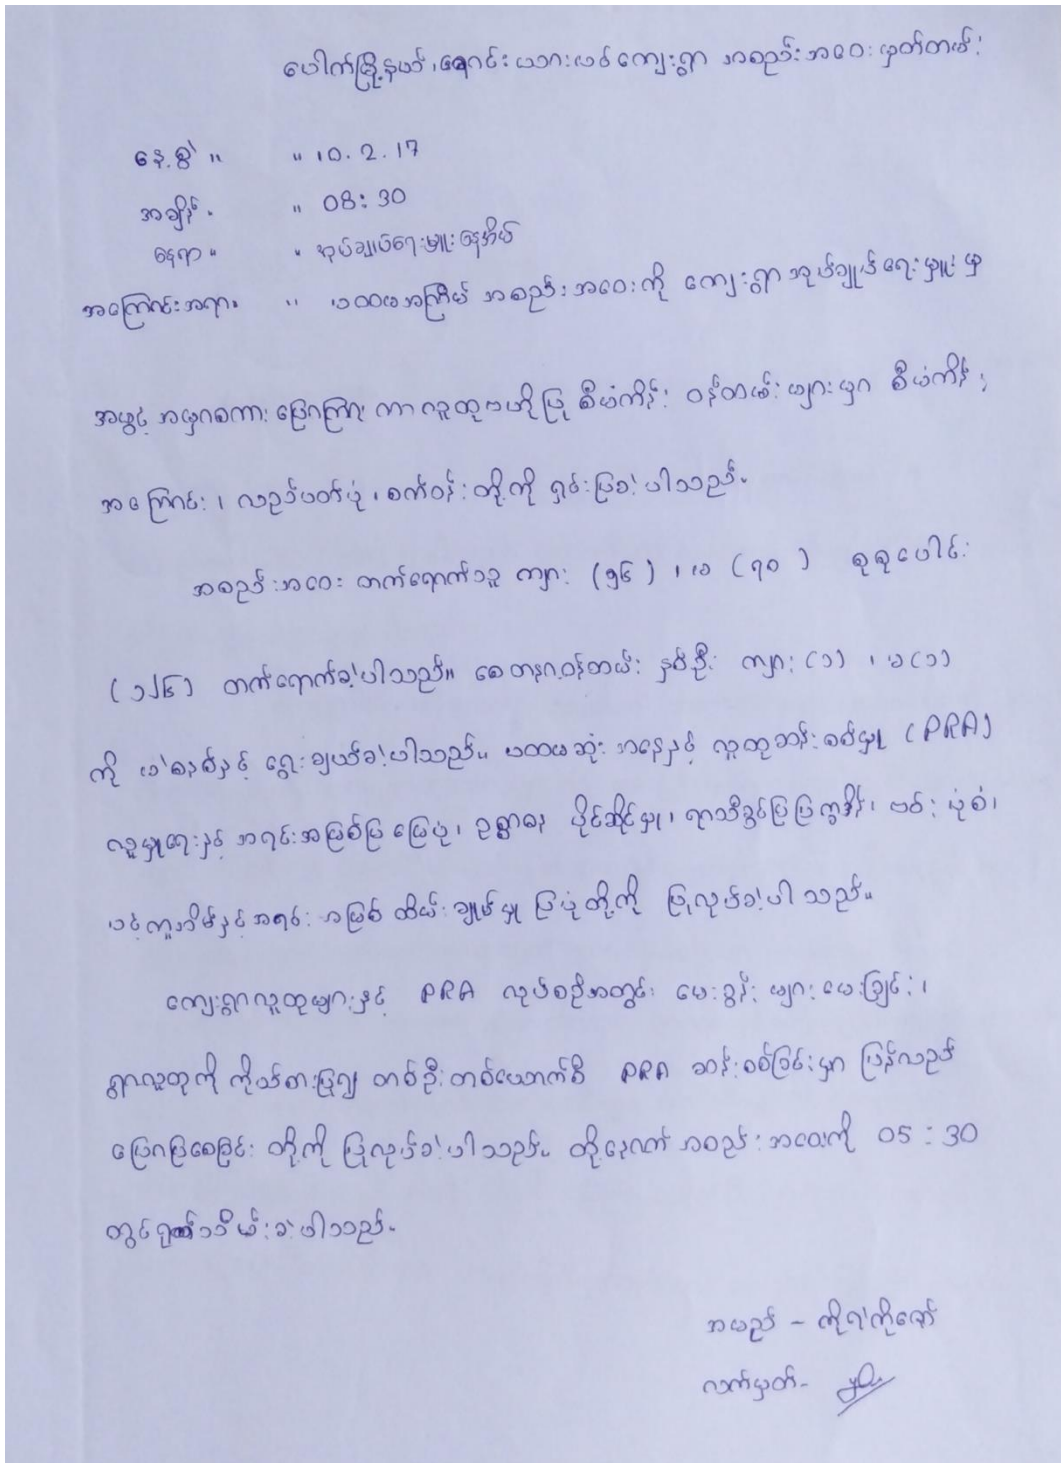 ပေါက်မြို့နယ်၊ ချောင်းယားယင်ကျေးရွာ အစည်းအဝေးမှတ်တမ်း
နေ့စွဲ ။ ။ 10.2.17
အချိန် ။ ။ 08:30
နေရာ ။ ။ အုပ်ချုပ်ရေးမှူးနေအိမ်
အကြောင်းအရာ။ ။ ပထမအကြိမ် အစည်းအဝေးကို ကျေးရွာအုပ်ချုပ်ရေးမှူးမှ
အဖွင့်အမှာစကား ပြောကြားကာ လူထုဗဟိုပြု စီမံကိန်း ဝန်ထမ်းများမှ စီမံကိန်း
အကြောင်း၊ လည်ပတ်ပုံ၊ စက်ဝန်းတို့ကို ရှင်းပြခဲ့ပါသည်။
အစည်းအဝေး တက်ရောက်သူ ကျား (၅၆)၊ မ (၇၀) စုစုပေါင်း
(၁၂၆) တက်ရောက်ခဲ့ပါသည်။ စေတနာ့ဝန်ထမ်း နှစ်ဦး ကျား (၁)၊ မ (၁)
ကို မဲစနစ်နှင့် ရွေးချယ်ခဲ့ပါသည်။ ပထမဆုံး အနေနှင့် လူထုဆန်းစစ်မှု (PRA)
လူမှုရေးနှင့် အရင်းအမြစ်ပြမြေပုံ၊ ဥစ္စာဓန ပိုင်ဆိုင်မှု၊ ရာသီခွင်ပြပြက္ခဒိန်၊ ဗင်းပုံစံ၊
ပင့်ကူအိမ်နှင့်အရင်းအမြစ် ထိန်းချုပ်မှု ပြပုံတို့ကို ပြုလုပ်ခဲ့ပါသည်။
ကျေးရွာလူထုများနှင့် PRA လုပ်စဉ်အတွင်း မေးခွန်းများမေးခြင်း၊
ရွာလူထုကို ကိုယ်စားပြု၍ တစ်ဦးတစ်ယောက်စီ PRA ဆန်းစစ်ခြင်းမှာ ပြန်လည်
ပြောပြစေခြင်း တို့ကို ပြုလုပ်ခဲ့ပါသည်။ ထို့နောက် အစည်းအဝေးကို 05:30
တွင်ရုတ်သိမ်းခဲ့ပါသည်။
အမည် - ကိုရဲကိုဇော်
လက်မှတ် -